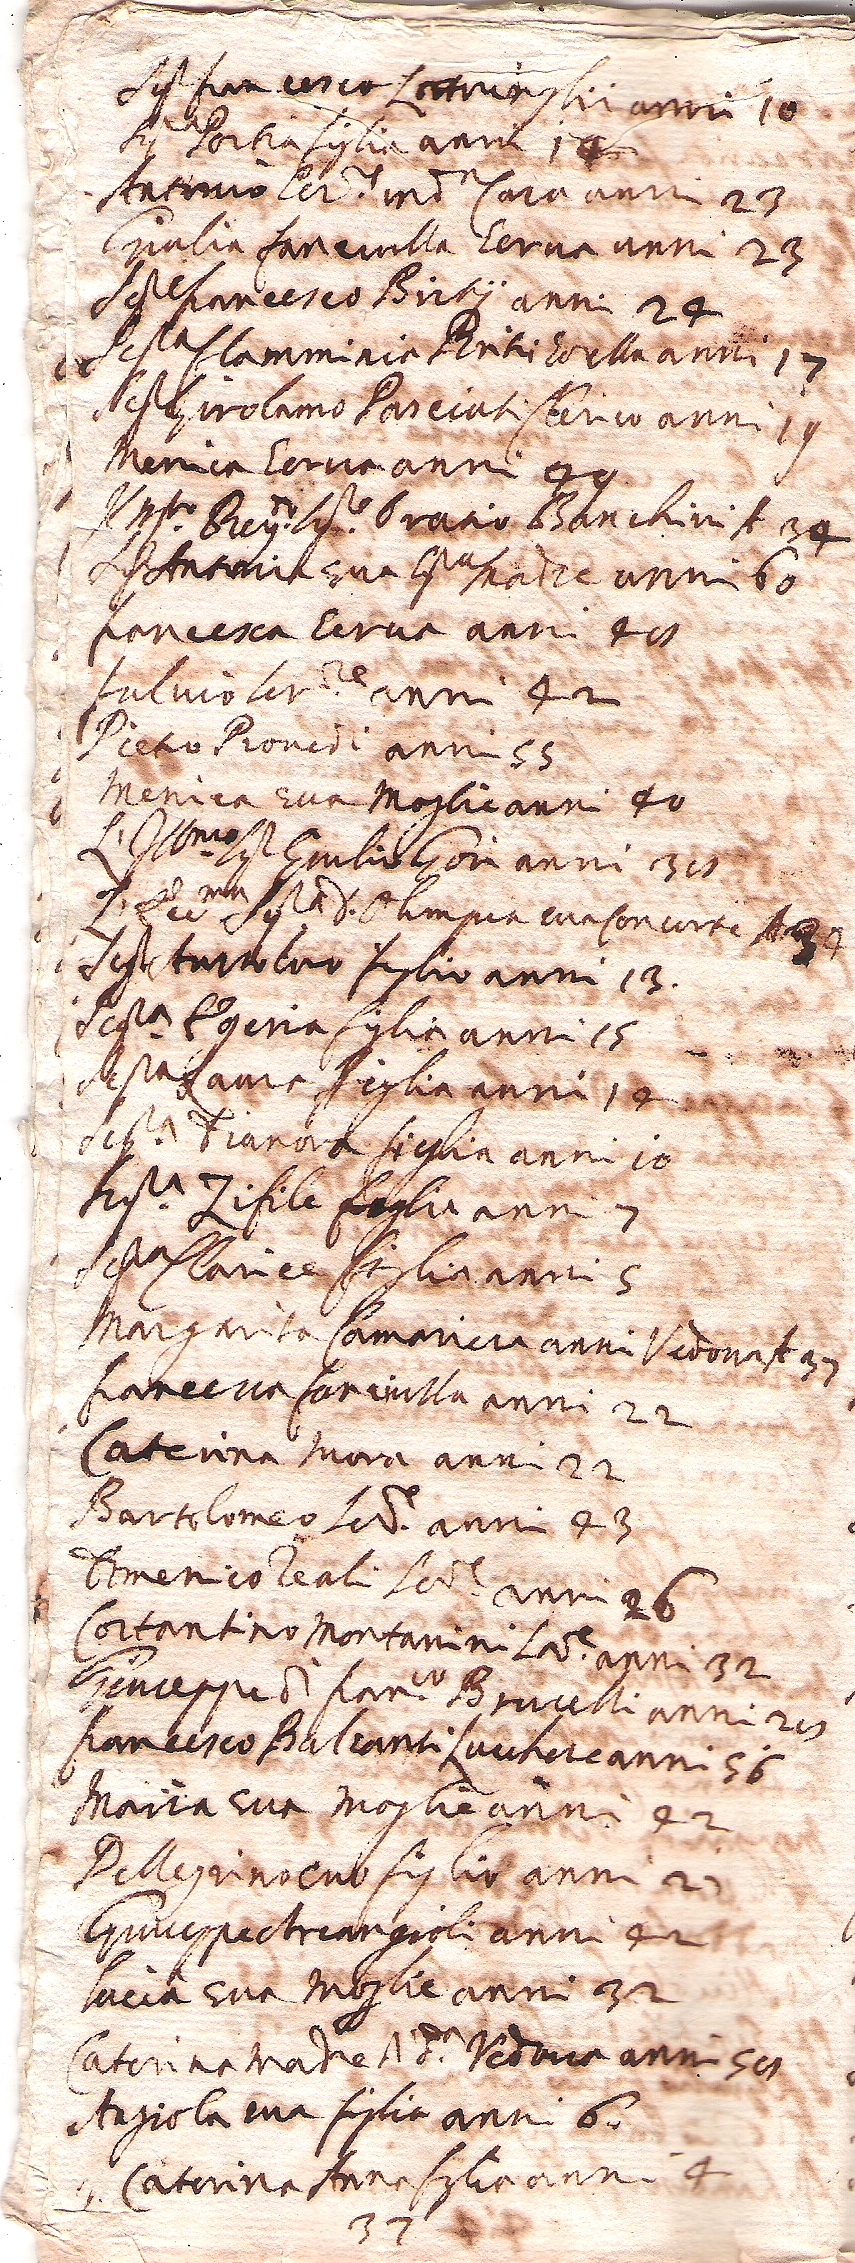 Sig.r francesco figli anni 10
Sig.a Portia figlia anni 14
Antonio Ser.e in d.a Casa anni 23
Giulia fanciulla Serua anni 23
Sig.e francesco anni 24
Sig.a flamminia sorella anni 17
Sig.r Girolamo Pasciuti Clerico anni 19
Menica Serua anni 49
Ill.mo Sig.re Oratio Banchini A 34
Sig.a Antonia sua Sig.ra Madre anni 60
francesca Serua anni 45
fuluio Ser.re anni 42
Pietro Prouedi anni 55
Menica sua Moglie anni 40
L'Ill.mo Sig.r Giulio Gori anni 35
Sig.a D. Olimpia sua Consorte A 34
Sig.r figlio anni 13.
Sig.a Egeria figlia anni 15
Sig.a Laura figlia anni 14
Sig.a Dianora figlia anni 10
Sig.a Zifile figlia anni 7
Sig.a Clarice figlia anni 5
Margarita Camariera anni Vedoua A 37
francesca fanciulla anni 22
Caterina Mora anni 22
Bartolomeo Ser.e anni 43
Domenico Reali Ser.e anni 26
Costantino Montanini Ser.e anni 32
Giuseppe di fran.co Brucelli anni 25
francesco Balsanti anni 56
Maria sua Moglie anni 42
Pellegrino suo figlio anni 21
Giuseppe anni 42
lucia sua Moglie anni 32
Caterina Madre d.a Vedoua anni 55
Angiola sua figlia anni 6.
Caterina Anna figlia anni 4
37